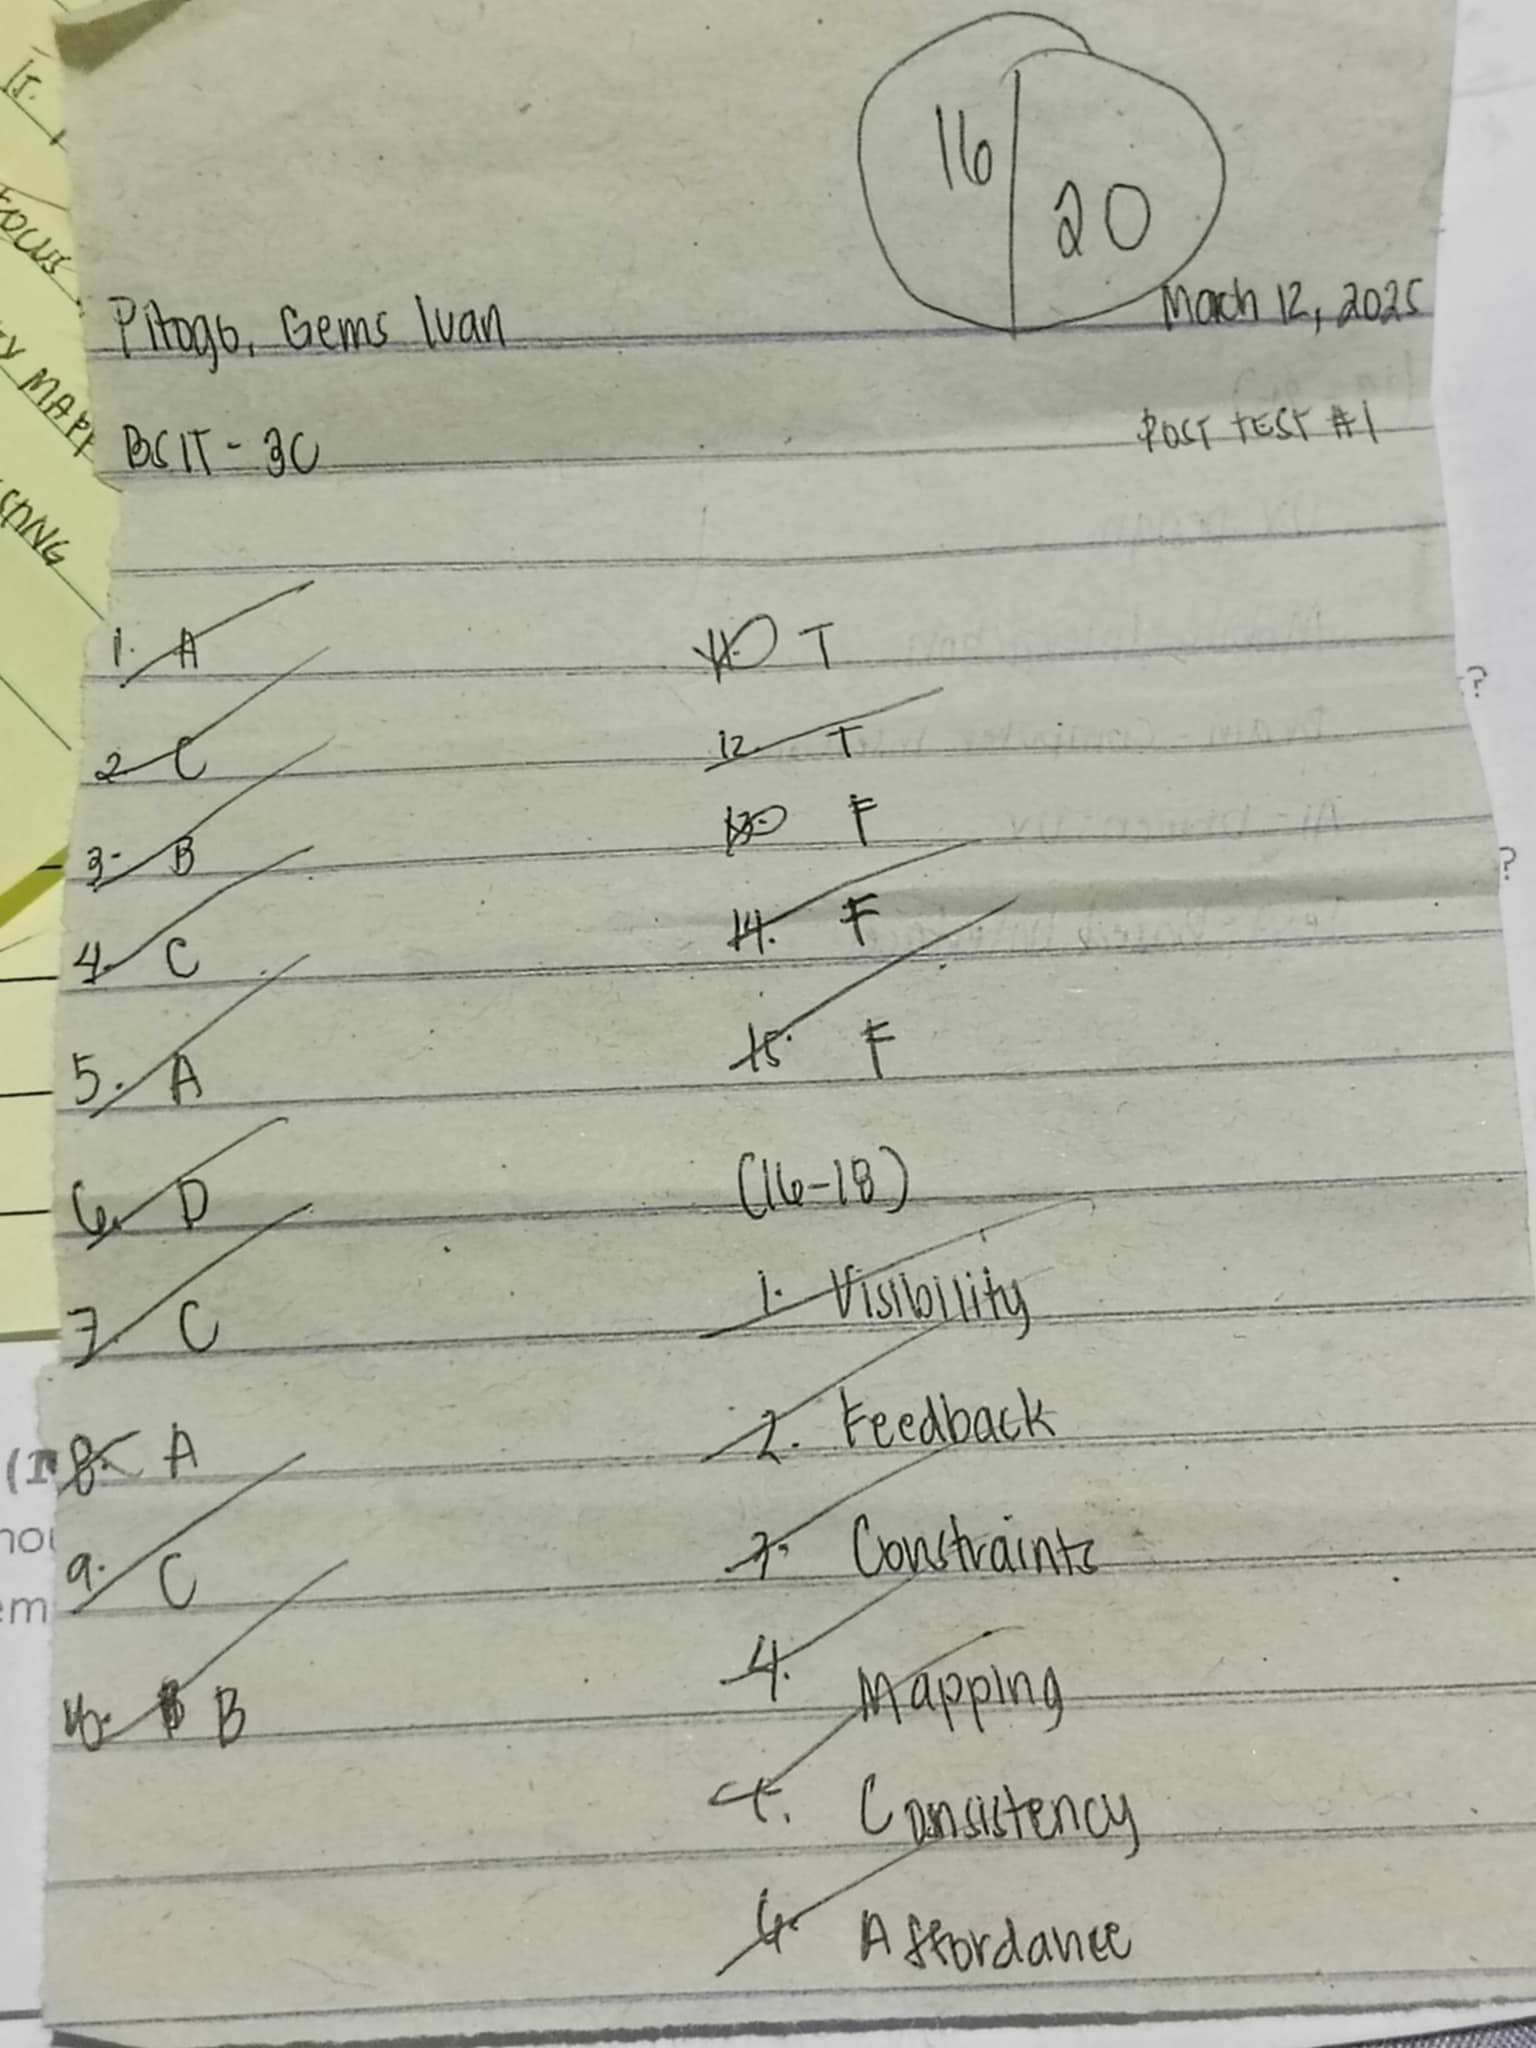 16/20
Pitogo, Gems Ivan
March 12, 2025
BSIT - 3C
POST TEST #1
1. A
2. C
3. B
4. C
5. A
6. D
7. C
8. A
9. C
10. B
11. T
12. T
13. F
14. F
15. F
(16-18)
1. Visibility
2. Feedback
3. Constraints
4. Mapping
Consistency
6. Affordance
IT.
FOCUS
TY MAPP